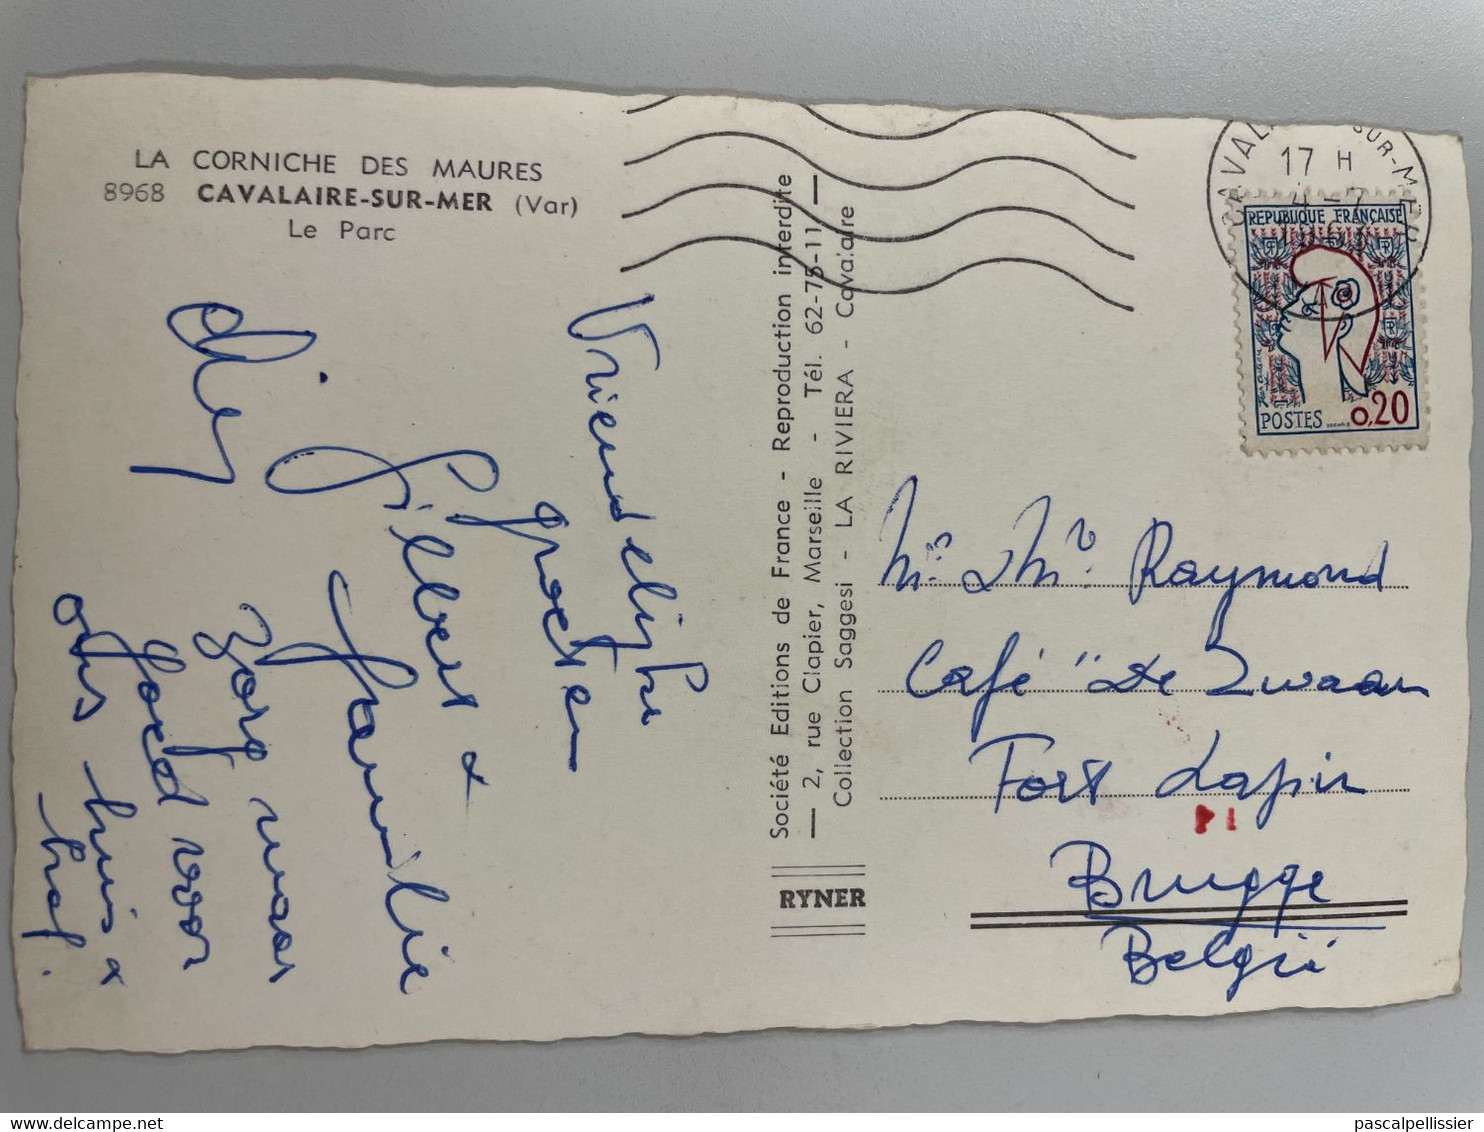 LA CORNICHE DES MAURES
8968 CAVALAIRE-SUR-MER (Var)
Le Parc
Vriendelijke
groeten
Gilbert &
familie
zorg maar
goed voor
ons huis &
hof.
Société Editions de France - Reproduction interdite
— 2, rue Clapier, Marseille - Tél. 62-75-11 —
Collection Saggesi - LA RIVIERA - Cavalaire
RYNER
CAVALAIRE-SUR-MER
17 H
4-7
REPUBLIQUE FRANÇAISE
POSTES 0,20
Mr. & Mr. Raymond
Café "De Zwaan
Fort Lapin
14
Brugge
België
delcampe.net
pascalpellissier